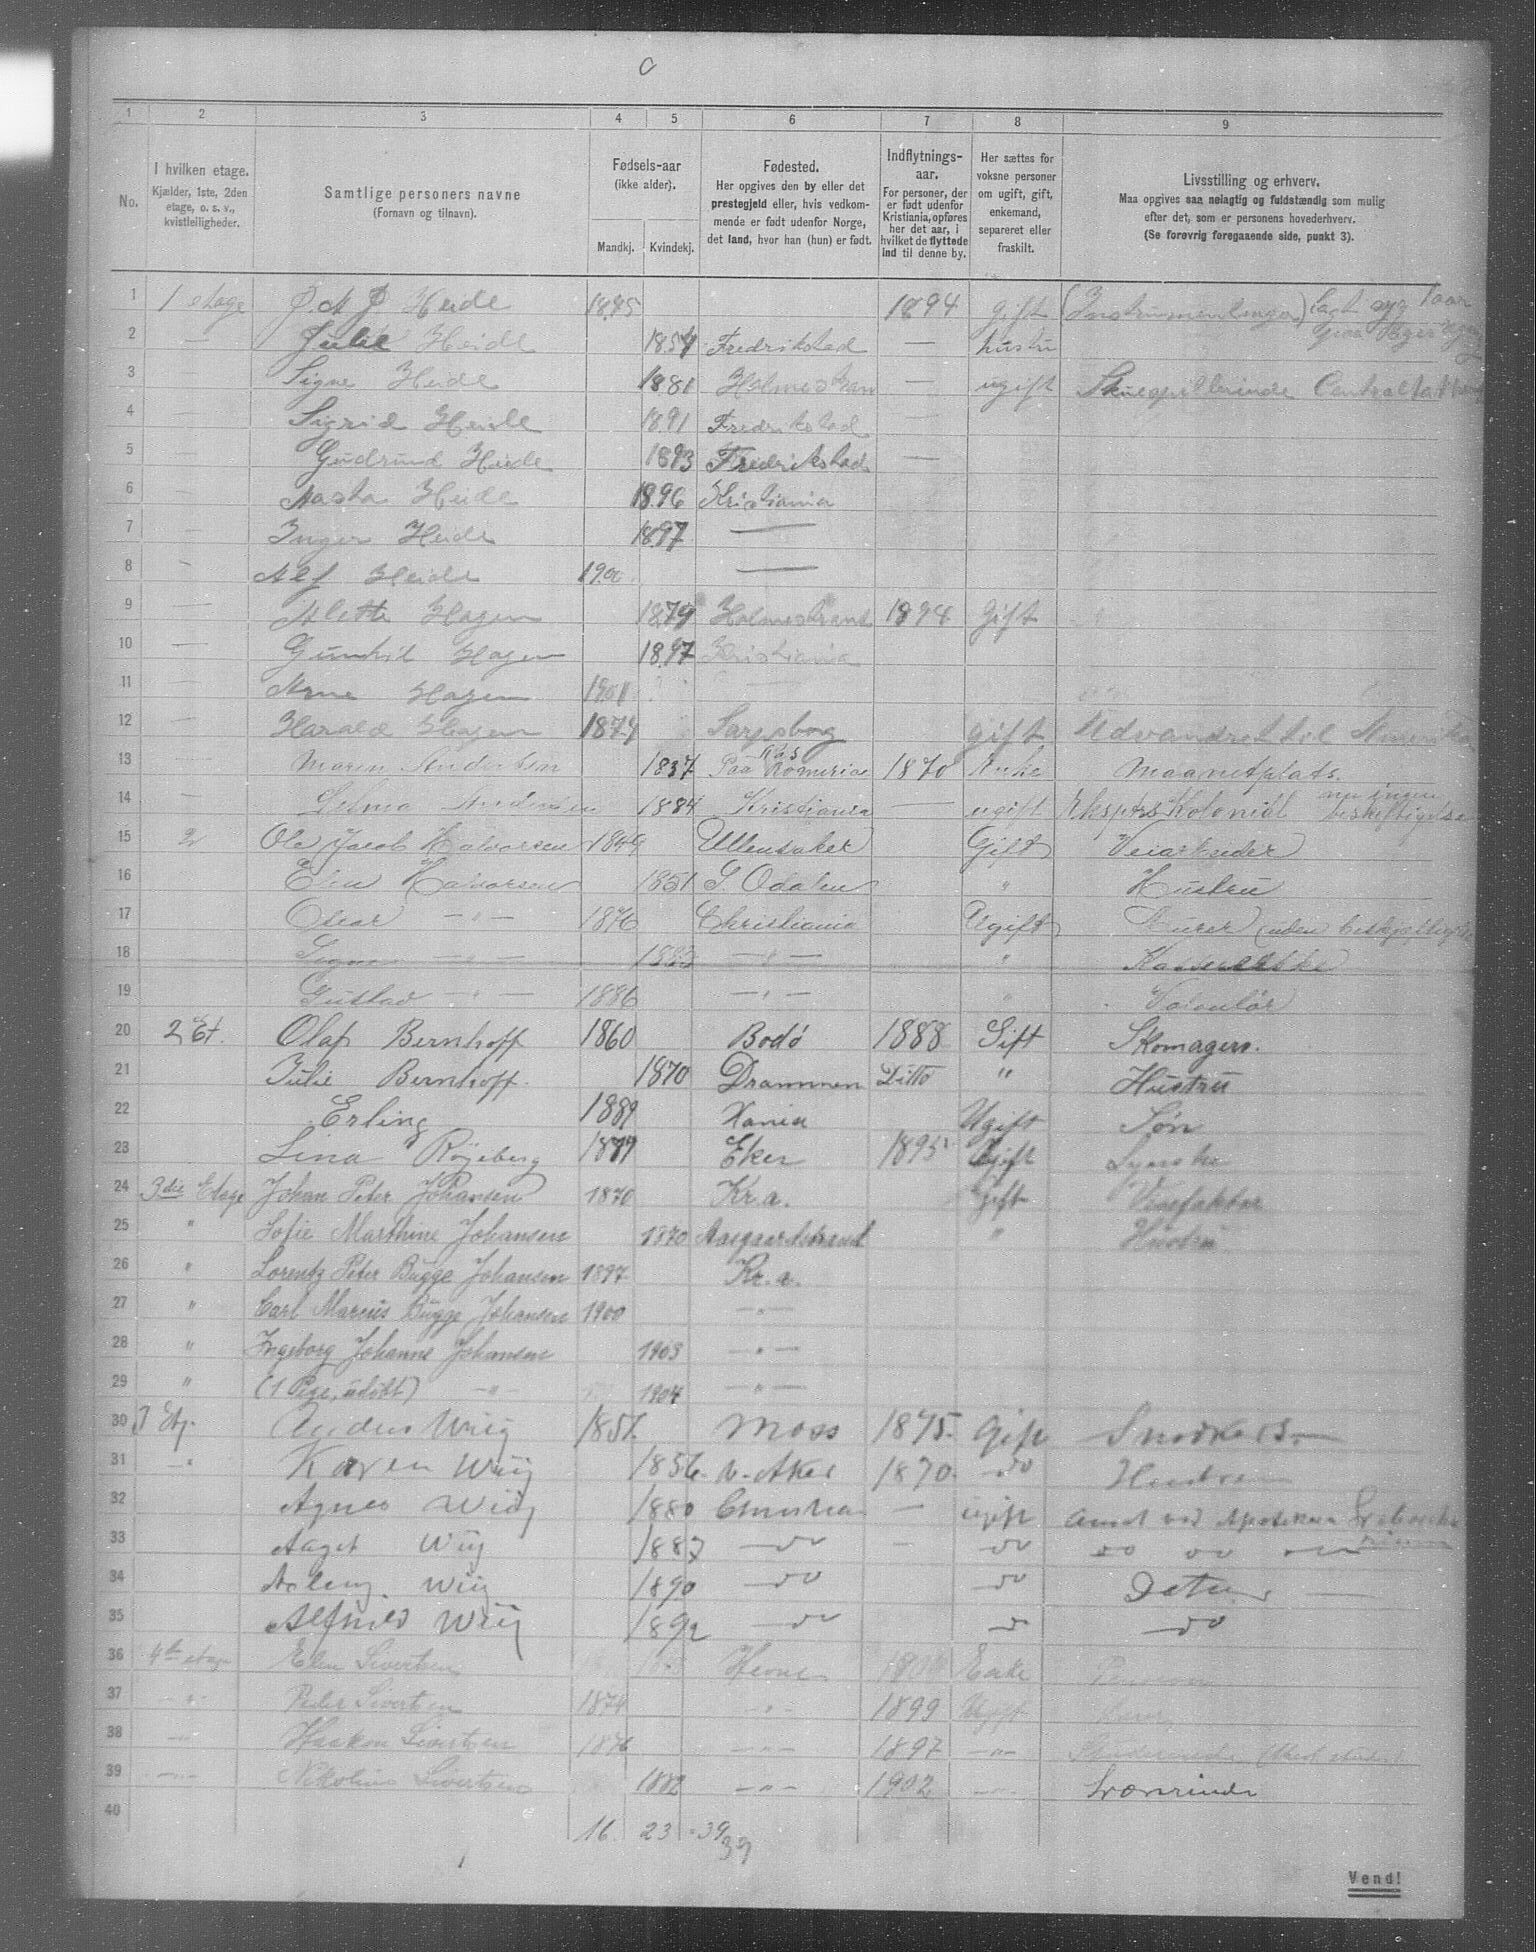 C
1 2 3 4 5 6 7 8 9
No.
I hvilken etage.
Kjælder, 1ste, 2den
etage, o. s. v.,
kvistleiligheder.
Samtlige personers navne
(Fornavn og tilnavn).
Fødsels-aar
(ikke alder).
Mandkj. Kvindekj.
Fødested.
Her opgives den by eller det
prestegjeld eller, hvis vedkom-
mende er født udenfor Norge,
det land, hvor han (hun) er født.
Indflytnings-
aar.
For personer, der
er født udenfor
Kristiania, opføres
her det aar, i
hvilket de flyttede
ind til denne by.
Her sættes for
voksne personer
om ugift, gift,
enkemand,
separeret eller
fraskilt.
Livsstilling og erhverv.
Maa opgives saa nøiagtig og fuldstændig som mulig
efter det, som er personens hovederhverv.
(Se forøvrig foregaaende side, punkt 3).
1 1 etage Heide 1845 1894 gift
2 — Julie Heide 1854 Fredrikstad — hustru
3 — Signe Heide 1881 Holmestran — ugift Skuespillerinde
4 — Sigrid Heide 1891 Fredrikstad —
5 — Gudrund Heide 1893 Fredrikstad —
6 — Aasta Heide 1896 Kristiania
7 — Inger Heide 1897 —
8 — Alf Heide 1900 —
9 — Alette Hagen 1879 Holmestrand 1894 Gift
10 — Gunhil Hagen 1897 Kristiania
11 — Arne Hagen 1901 —
12 — Harald Hagen 1874 Sarpsborg gift Udvandret til Amerika
13 — Maren Andersen 1837 Paa Romerige 1870 Enke
14 — Selma Andersen 1884 Kristiania — ugift nu ingen beskeftigelse
15 2 Ole Jacob Halvorsen 1849 Ullensaker Gift Veiarbeider
16 Halvorsen 1851 S. Odalen " Hustru
17 Oscar — " — 1876 Christiania Ugift Murer (uden beskjeftigelse
18 Signe — " — 1883 — " — "
19 Gustav — " — 1886 — " — " Volontør
20 2 Et. Olaf Bernhoff 1860 Bodø 1888 Gift Skomager.
21 Julie Bernhoff. 1870 Drammen Ditto " Hustru
22 Erling 1889 Xania Ugift Søn
23 Lina Røgeberg 1877 Eker 1895 Ugift
24 3die Etage Johan Peter Johansen 1870 Kr.a. Gift Visefaktor
25 " Sofie Marthine Johansen 1870 Aasgaardstrand " Hustru
26 " Lorentz Peter Bugge Johansen 1897 Kr.a.
27 " Carl Marius Bugge Johansen 1900 — " —
28 " Ingeborg Johanne Johansen 1903 — " —
29 " (1 Pige, udøbt) — " — 1904 — " —
30 Etg. Anders Wiig 1851. Moss 1875. Gift Snedkers.
31 — " Karen Wiig 1856. V. Aker 1870. do Hustru
32 Agnes Wiig 1880 Christiania — ugift
33 Aagot Wiig 1887 do — do do do
34 Wiig 1890 do do Datter
35 Alfhild Wiig 1892 do do do
36 4de etage Elen Sivertsen Hevne Enke
37 — " — Peder Sivertsen 1874 — " — 1899 Ugift
38 — " — Haakon Sivertsen 1876 — " — 1897 — " —
39 — " — Nikoline Sivertsen 1882 — " — 1902 — " — Lærerinde
40
16. 23 39
39
Vend!